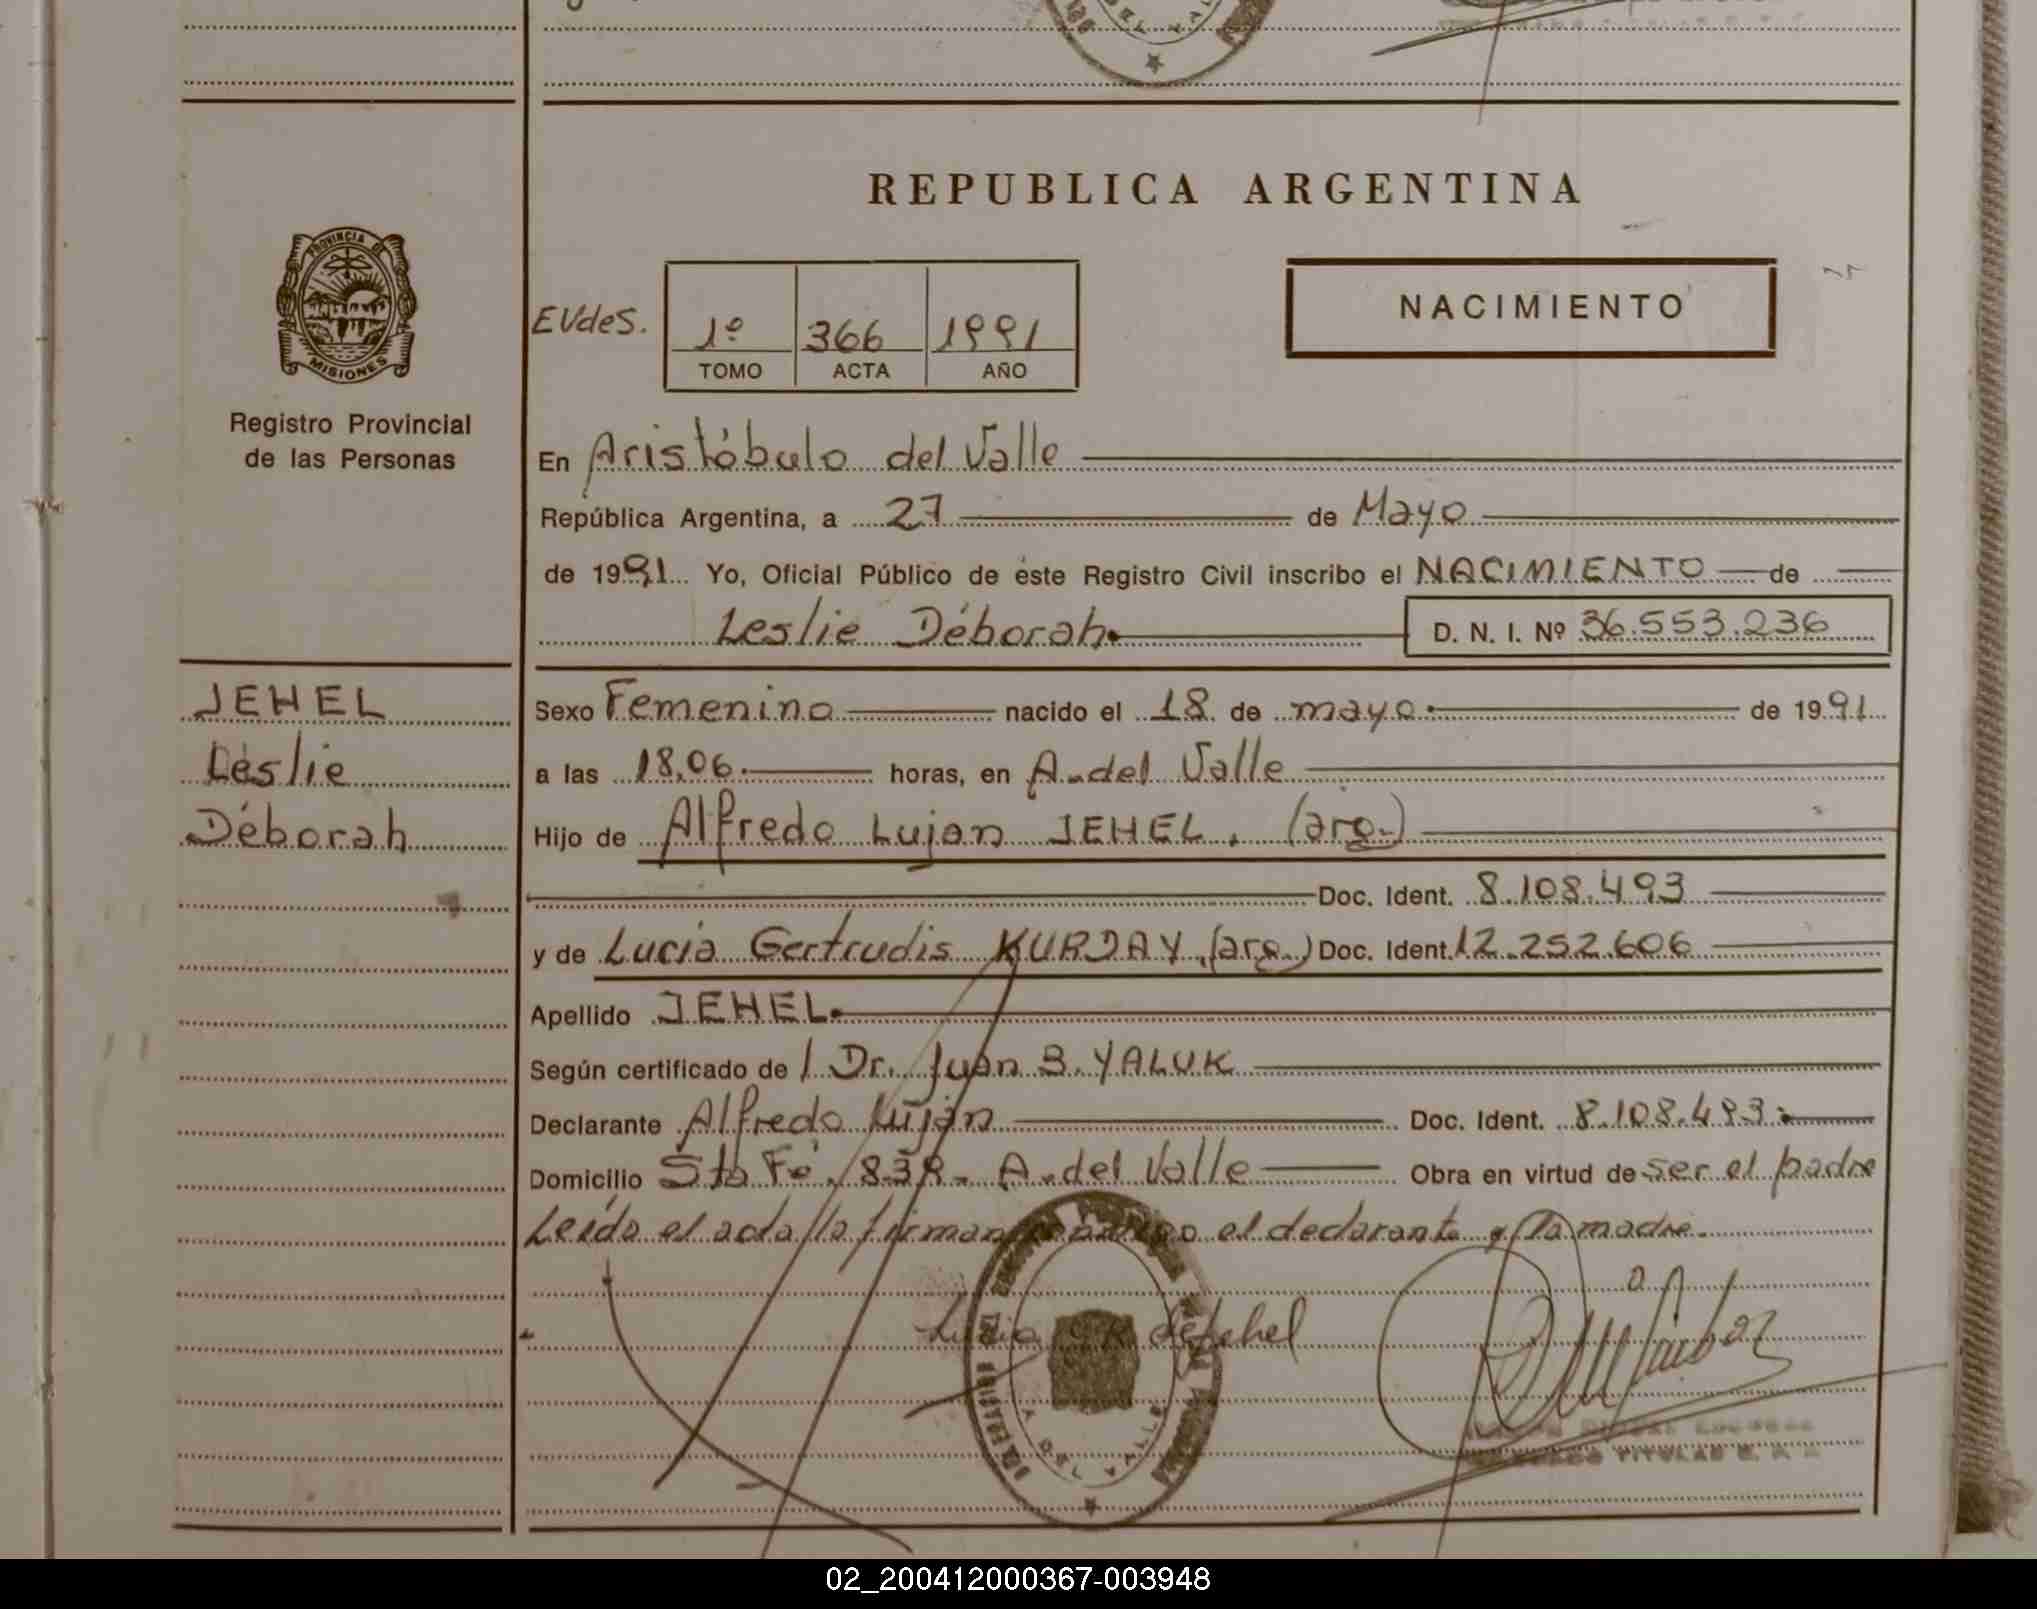 REPUBLICA ARGENTINA
PROVINCIA DE
MISIONES
Registro Provincial
de las Personas
EVdeS.
1º 366 1991
TOMO ACTA AÑO
NACIMIENTO
En Aristóbulo del Valle
República Argentina, a 27 de Mayo
de 1991 Yo, Oficial Público de éste Registro Civil inscribo el NACIMIENTO de
Leslie Déborah D. N. I. Nº 36.553.236
JEHEL
Leslie
Déborah
Sexo Femenino nacido el 18 de mayo de 1991
a las 18,06 horas, en A. del Valle
Hijo de Alfredo Lujan JEHEL. (arg.)
Doc. Ident. 8.108.493
y de Lucia Gertrudis KURDAY (arg.) Doc. Ident. 12.252.606
Apellido JEHEL
Según certificado de Dr. Juan B. YALUK
Declarante Alfredo Luján Doc. Ident. 8.108.493
Domicilio Sta Fé, 839. A. del Valle Obra en virtud de ser el padre
Leída el acta la firman conmigo el declarante y la madre.
DEL VALLE
TITULAR
02_200412000367-003948